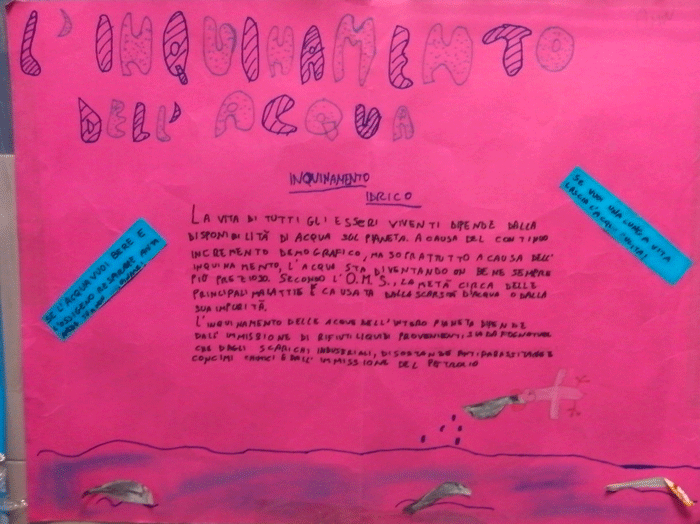 L'INQUINAMENTO
DELL'ACQUA
INQUINAMENTO
IDRICO
LA VITA DI TUTTI GLI ESSERI VIVENTI DIPENDE DALLA
DISPONIBILITÀ DI ACQUA SUL PIANETA. A CAUSA DEL CONTINUO
INCREMENTO DEMOGRAFICO, MA SOPRATTUTTO A CAUSA DELL'
INQUINAMENTO, L'ACQUA STA DIVENTANDO UN BENE SEMPRE
PIÙ PREZIOSO. SECONDO L'O.M.S., LA METÀ CIRCA DELLE
PRINCIPALI MALATTIE È CAUSATA DALLA SCARSITÀ D'ACQUA O DALLA
SUA IMPURITÀ.
L'INQUINAMENTO DELLE ACQUE DELL'INTERO PIANETA DIPENDE
DALL'IMMISSIONE DI RIFIUTI LIQUIDI PROVENIENTI, SIA DA FOGNATURE
CHE DAGLI SCARICHI INDUSTRIALI, DI SOSTANZE ANTIPARASSITARIE E
CONCIMI CHIMICI E DALL'IMMISSIONE DEL PETROLIO
SE L'ACQUA VUOI BERE E
L'OSSIGENO RESPIRARE
SE VUOI UNA LUNGA VITA
LASCIA L'ACQUA PULITA!